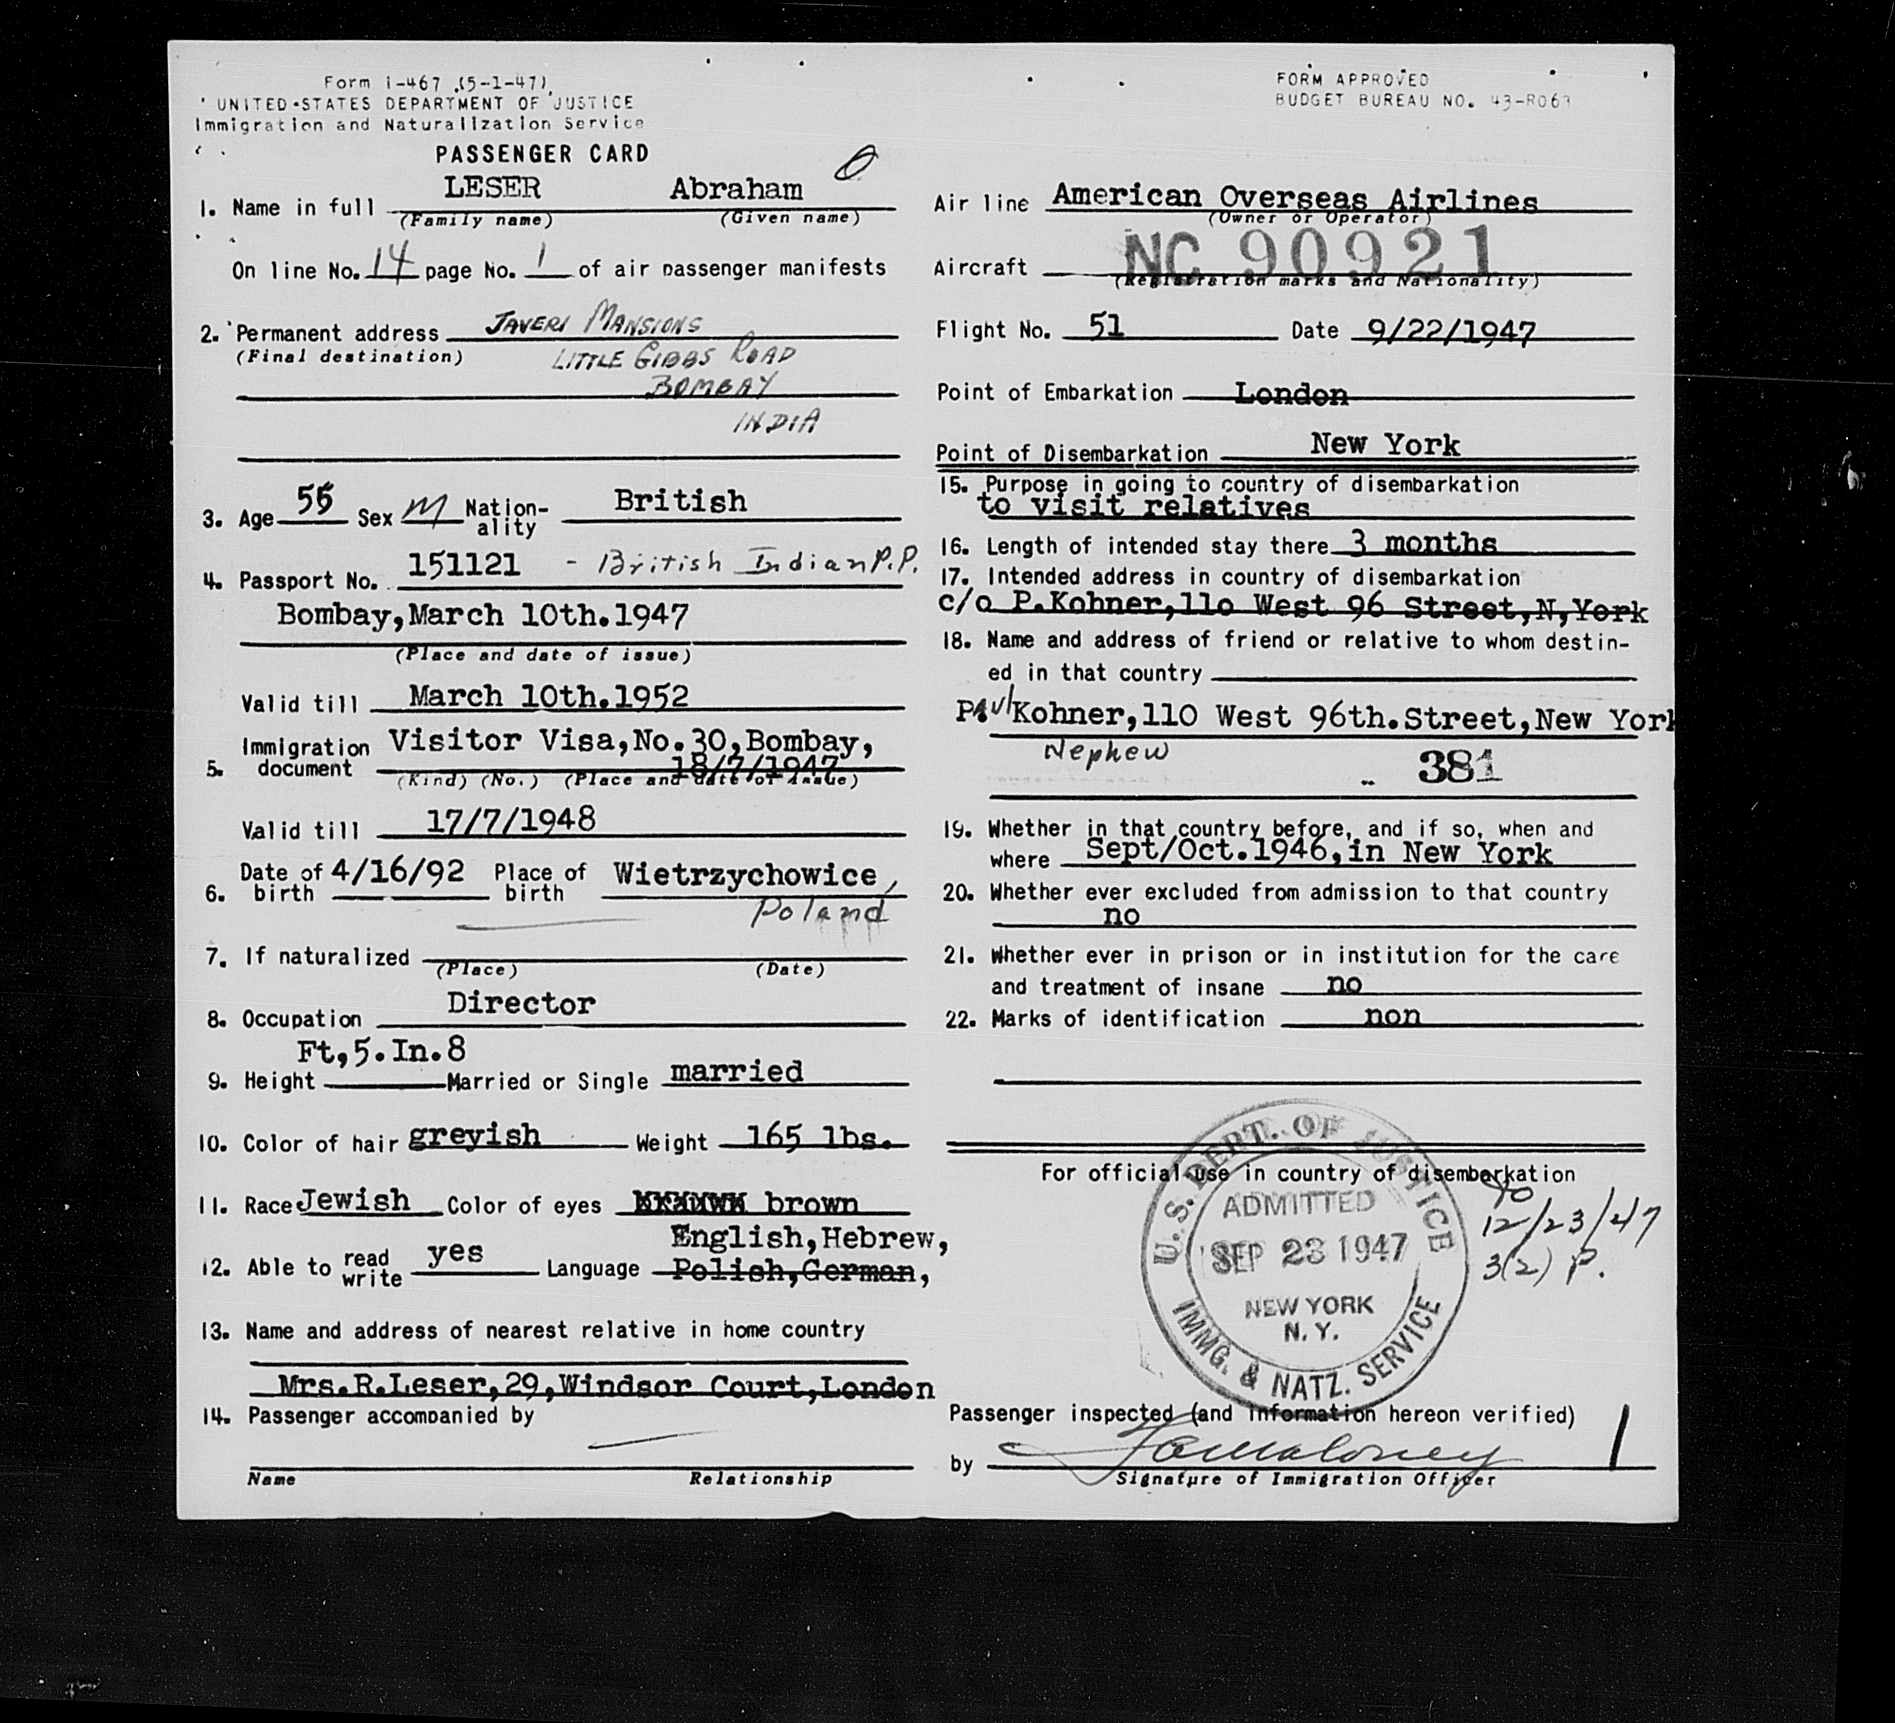 Form I-467 (5-1-47)
UNITED STATES DEPARTMENT OF JUSTICE
Immigration and Naturalization Service
PASSENGER CARD
LESER Abraham
1. Name in full
(Family name) (Given name)
On line No. 14 page No. 1 of air passenger manifests
2. Permanent address JAVERI MANSIONS
(Final destination) LITTLE GIBBS ROAD
BOMBAY
INDIA
3. Age 55 Sex M Nation-ality British
4. Passport No. 151121 - British Indian P.P.
Bombay,March 10th.1947
(Place and date of issue)
Valid till March 10th.1952
5. Immigration document Visitor Visa,No.30,Bombay,
18/7/1947
(Kind) (No.) (Place and date of issue)
Valid till 17/7/1948
6. Date of birth 4/16/92 Place of birth Wietrzychowice,
Poland
7. If naturalized
(Place) (Date)
8. Occupation Director
Ft,5.In.8
9. Height Married or Single married
10. Color of hair greyish Weight 165 lbs.
11. Race Jewish Color of eyes brown
English,Hebrew,
12. Able to read write yes Language Polish,German,
13. Name and address of nearest relative in home country
Mrs.R.Leser,29,Windsor Court,London
14. Passenger accompanied by
Name Relationship
FORM APPROVED
BUDGET BUREAU NO. 43-R063
Air line American Overseas Airlines
(Owner or Operator)
Aircraft NC 90921
(Registration marks and Nationality)
Flight No. 51 Date 9/22/1947
Point of Embarkation London
Point of Disembarkation New York
15. Purpose in going to country of disembarkation
to visit relatives
16. Length of intended stay there 3 months
17. Intended address in country of disembarkation
c/o P.Kohner,11o West 96 Street,N,York
18. Name and address of friend or relative to whom destin-
ed in that country
Paul Kohner,110 West 96th.Street,New York
Nephew
381
19. Whether in that country before, and if so, when and
where Sept/Oct.1946,in New York
20. Whether ever excluded from admission to that country
no
21. Whether ever in prison or in institution for the care
and treatment of insane no
22. Marks of identification non
For official use in country of disembarkation
U.S. DEPT. OF JUSTICE
ADMITTED
SEP 23 1947
NEW YORK
N.Y.
IMMG. & NATZ. SERVICE
to
12/23/47
3(2) P.
Passenger inspected (and information hereon verified)
by
Signature of Immigration Officer
1